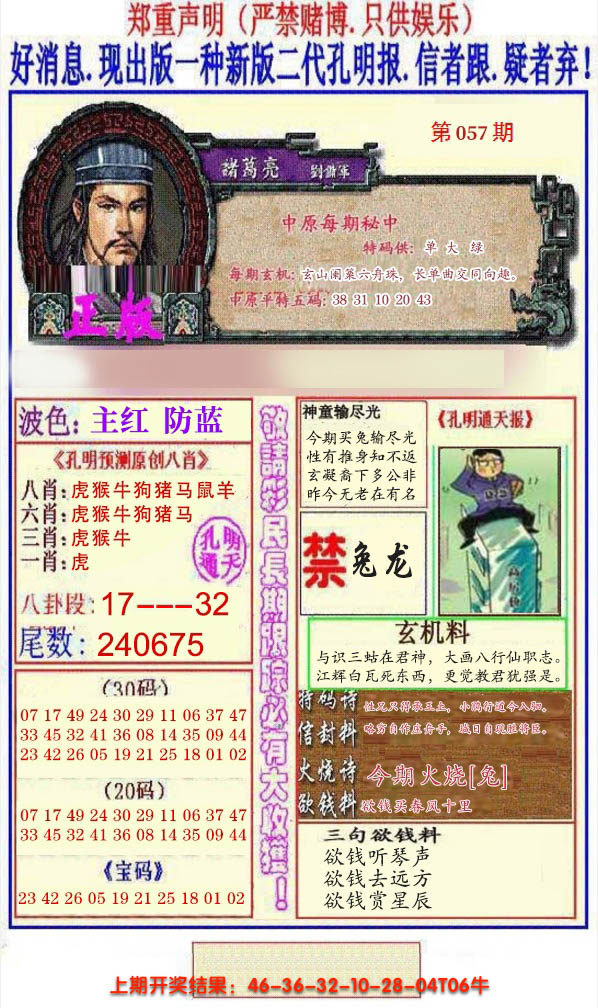 郑重声明（严禁赌博.只供娱乐）
好消息.现出版一种新版二代孔明报.信者跟.疑者弃！
第057期
諸葛亮
中原每期秘中
特码供：单 大 绿
每期玄机：玄山阑策六舟珠，长单曲交同向趣。
中原平特五码：38 31 10 20 43
正版
波色：主红 防蓝
《孔明预测原创八肖》
八肖：虎猴牛狗猪马鼠羊
六肖：虎猴牛狗猪马
三肖：虎猴牛
一肖：虎
孔明
通天
八卦段：17---32
尾数：240675
（30码）
07 17 49 24 30 29 11 06 37 47
33 45 32 41 36 08 14 35 09 44
23 42 26 05 19 21 25 18 01 02
（20码）
07 17 49 24 30 29 11 06 37 47
33 45 32 41 36 08 14 35 09 44
《宝码》
23 42 26 05 19 21 25 18 01 02
敬請彩民長期跟踪必有大收獲！
神童输尽光
今期买兔输尽光
性有推身知不返
玄凝裔下多公非
昨今无老在有名
《孔明通天报》
禁 兔龙
玄机料
与识三蛄在君神，大画八行仙职志。
江辉白瓦死东西，更觉教君犹强是。
特码诗
信封料
火烧诗 今期火烧[兔]
欲钱料 欲钱买春风十里
三句欲钱料
欲钱听琴声
欲钱去远方
欲钱赏星辰
上期开奖结果：46-36-32-10-28-04T06牛